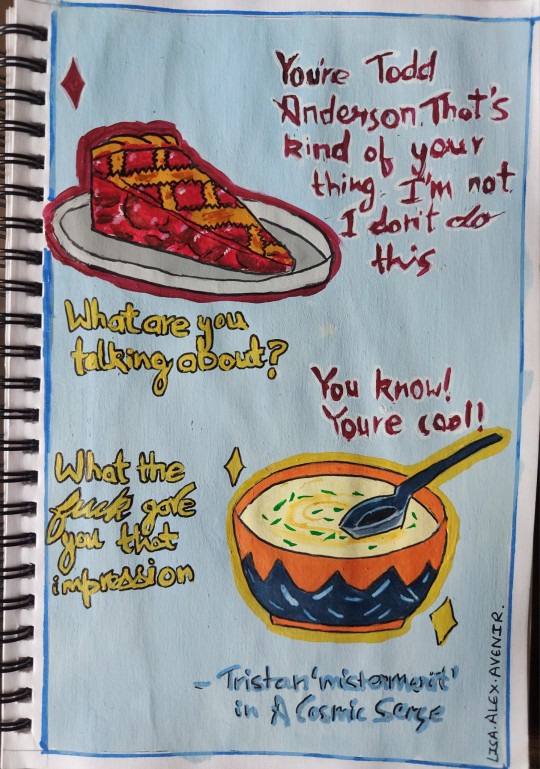 You're Todd
Anderson. That's
kind of your
thing. I'm not.
I don't do
this
What are you
talking about?
You know!
Youre cool!
What the
fuck gave
you that
impression
- Tristan 'mistermerit'
in A Cosmic Serge
LISA.ALEX.AVENIR.